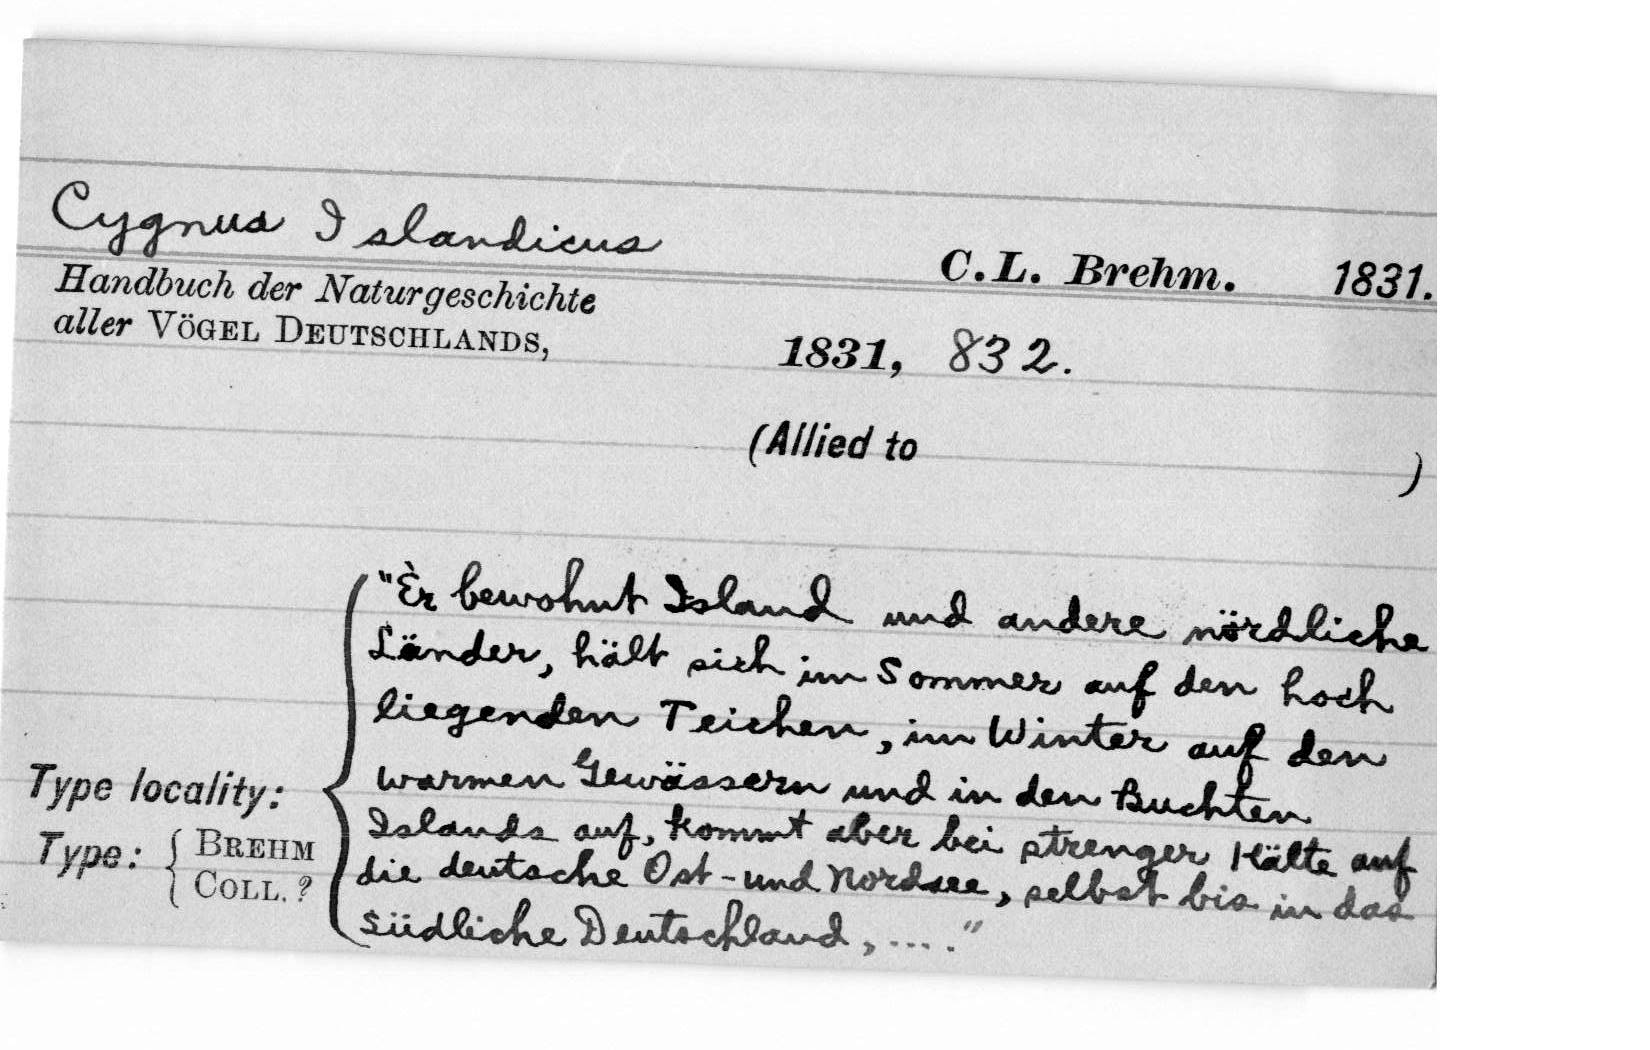 Cygnus Islandicus C.L. Brehm. 1831.
Handbuch der Naturgeschichte
aller VÖGEL DEUTSCHLANDS, 1831, 832.
(Allied to )
"Er bewohnt Island und andere nördliche
Länder, hält sich im Sommer auf den hoch
liegenden Teichen, im Winter auf den
warmen Gewässern und in den Buchten
Islands auf, kommt aber bei strenger Kälte auf
die deutsche Ost-und Nordsee, selbst bis in das
südliche Deutschland, ...."
Type locality:
Type: { BREHM
COLL. ?